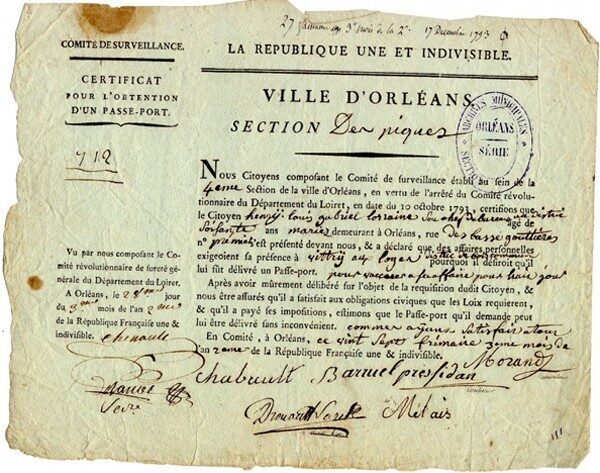 27 frimaire 3e mois de la 2e 17 Decembre 1793
COMITÉ DE SURVEILLANCE.
CERTIFICAT
POUR L'OBTENTION
D'UN PASSE-PORT.
712
Vu par nous composant le Comité révolutionnaire de sureté générale du Département du Loiret.
A Orléans, le jour
du mois de l'an 2me
de la République Française une &
indivisible.
chenault
LA REPUBLIQUE UNE ET INDIVISIBLE.
VILLE D'ORLÉANS,
SECTION Des piques
ARCHIVES MUNICIPALES
ORLÉANS
SÉRIE
Nous Citoyens composant le Comité de surveillance établi au sein de la
4eme Section de la ville d'Orléans, en vertu de l'arrêté du Comité révolu-
tionnaire du Département du Loiret, en date du 10 octobre 1793, certifions que
le Citoyen henry louis gabriel lorraine chef de bureau au district âgé de
soisante ans mariez demeurant à Orléans, rue des basse gouttieres
n° premier s'est présenté devant nous, & a déclaré que des affaires personnelles
exigeoient sa présence à vittry aux loges pourquoi il désiroit qu'il
lui fût délivré un Passe-port. pour vacquer a ses affaire pour huit jour
Après avoir mûrement délibéré sur l'objet de la requisition dudit Citoyen, &
nous être assurés qu'il a satisfait aux obligations civiques que les Loix requierent,
& qu'il a payé ses impositions, estimons que le Passe-port qu'il demande peut
lui être délivré sans inconvénient. comme ayant satisfait a tour
En Comité, à Orléans, ce vint sept frimaire 3eme mois de
l'an 2eme de la République Française une & indivisible.
Chabault Barruel presidan Morand
Drouard Metais